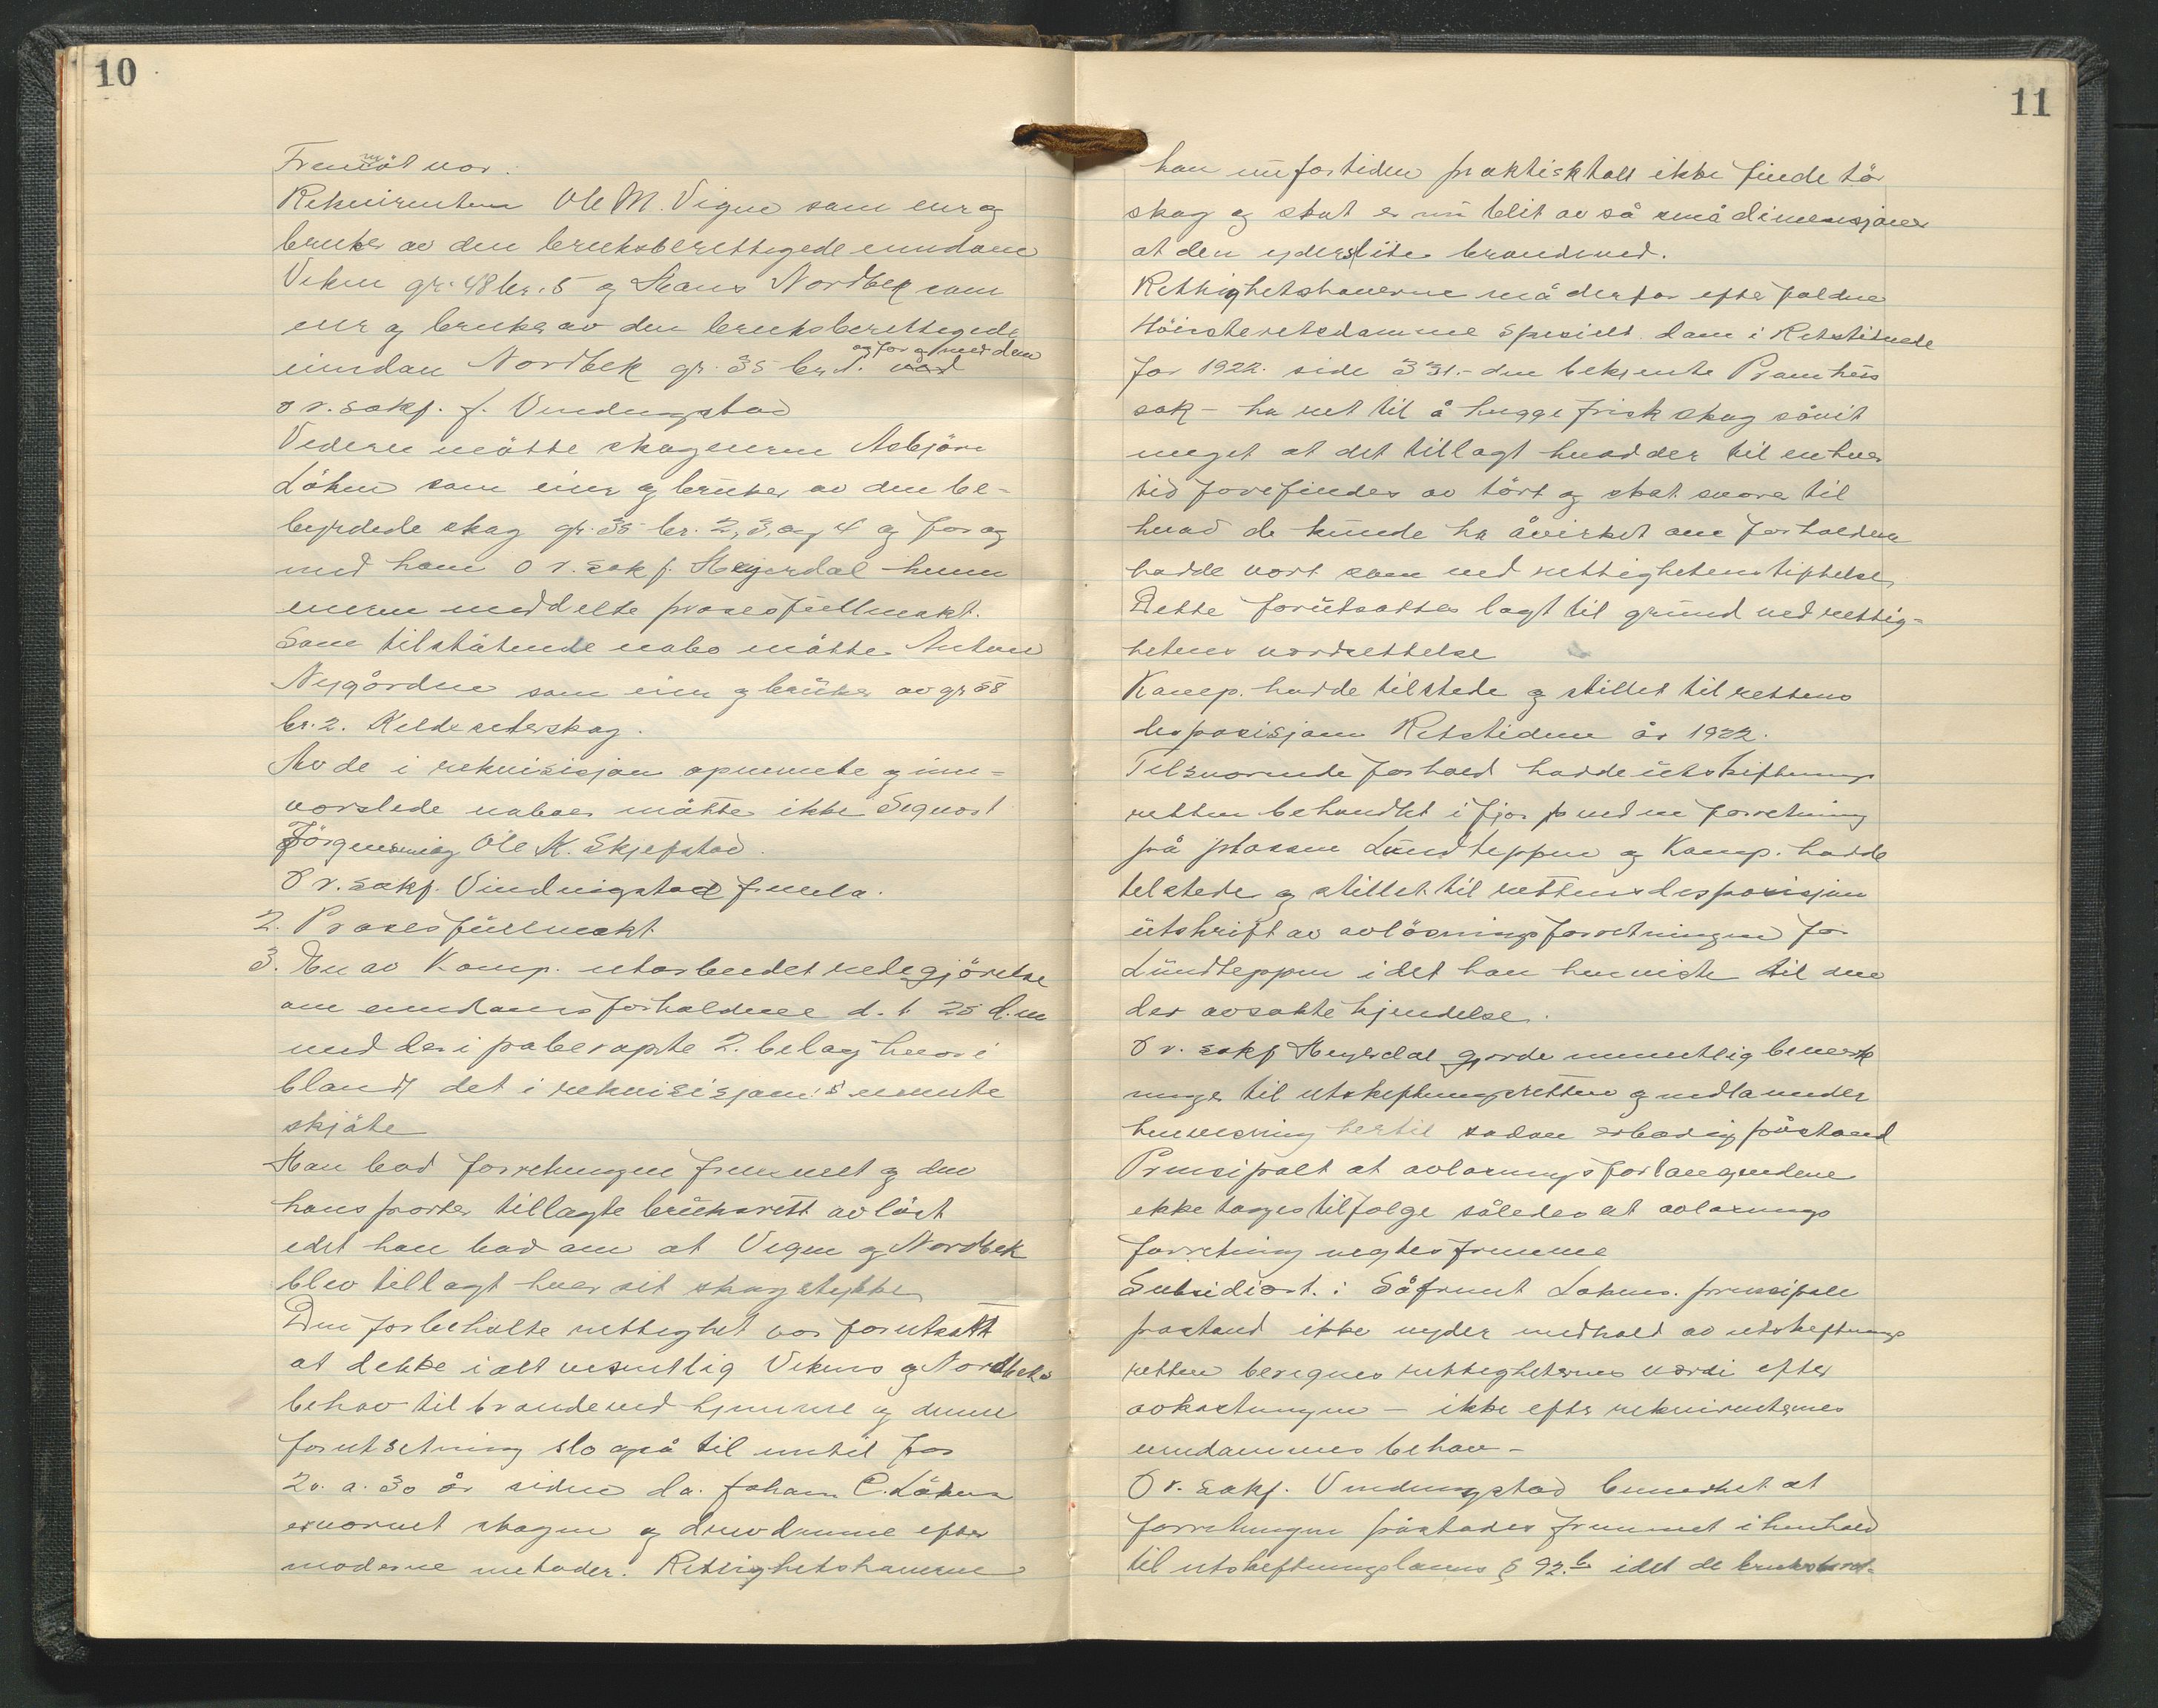 10
Fremmöt var.
Rekvirenten Ole M. Vigen som eier og
bruker av den bruksberettigede eiendom
Viken gr. 48 br. 5 og Hans Nordbek som
eier og bruker av den bruksberettigede
eiendom Nordbek gr. 35 br. 1. og for og med dem
o r. sakf. J. Vindingstad
Videre mötte skogeieren Asbjörn
Löken som eier og bruker av den be-
byrdede skog gr. 35 br. 2, 3, og 4 og for og
med ham O r. sakf. Heyerdal hvem
eieren meddelte prosesfullmakt.
Som tilstötende nabo mötte Anton
Nygården som eier og bruker av gr 58
br. 2. Keldeseterskog.
Av de i rekvisisjon opnevnte og inn-
varslede naboer mötte ikke Sigvart
Jörgensen og Ole K. Skjefstad.
O r. sakf. Vindingstad fremla.
2. Prosesfullmakt
3. En av Komp. utarbeidet redegjörelse
om eiendomsforholdene d. t. 25 d.m
med deri paberopte 2. belag hvori
blandt det i rekvisisjonens nevnte
skjöte
Han bad forretningen fremmet og den
hans parter tillagte bruksrett avlöst
idet han bad om at Vigen og Nordbek
blev tillagt hver sit skogstykke
Den forbeholte rettighet var forutsatt
at dekke i alt vesentlig Vikens og Nordbeks
behov til brandeved hjemme og denne
forutsetning slo også til inntil for
20. a. 30 år siden da Johan C. Löken
ervervet skogen og drev denne efter
moderne metoder. Rettighetshaverne
11
kan nu fortiden praktisk talt ikke finde tör
skog og skat er nu blit av så små dimensjoner
at den yder lite brandeved.
Rettighetshaverne må derfor efter faldne
Höiesteretsdomme spesielt dom i Retstidende
for 1922. side 331. - den bekjente Pramhus
sak - ha ret til å hugge frisk skog såvit
meget at det tillagt hvad der til enhver
tid forefindes av tört og skat svare til
hvad de kunde ha åvirket om forholdene
hadde vært som ved rettighetens stiftelse
Dette forutsattes lagt til grund ved rettig-
hetens værdsettelse
Komp. hadde tilstede og stillet til rettens
disposisjon Retstidene år 1922.
Tilsvarende forhold hadde utskiftnings
retten behandlet i fjor ved en forretning
på plassen Lundteppen og Komp. hadde
tilstede og stillet til rettens disposisjon
utskrift av avlösningsforretningen for
Lundteppen idet han henviste til den
der avsakte kjendelse.
O r. sakf Heyerdal gjorde muntlig bemerk
ninger til utskiftningsretten og nedla under
henvisning hertil sådan erbödig påstand
Prinsipalt at avlösningsforlangendene
ikke tages tilfölge således at avlösnings
forretning negtes fremme
Subsidiært. : Såfremt Lökens. prinsipale
påstand ikke nyder medhold av utskiftnings
retten beregnes rettigheternes værdi efter
avkastningen - ikke efter rekvirenternes
eiendommes behov -
O r. sakf. Vindingstad bemerket at
forretningen påstodes fremmet i henhold
til utskiftningslovens § 92. b idet de bruksberet-